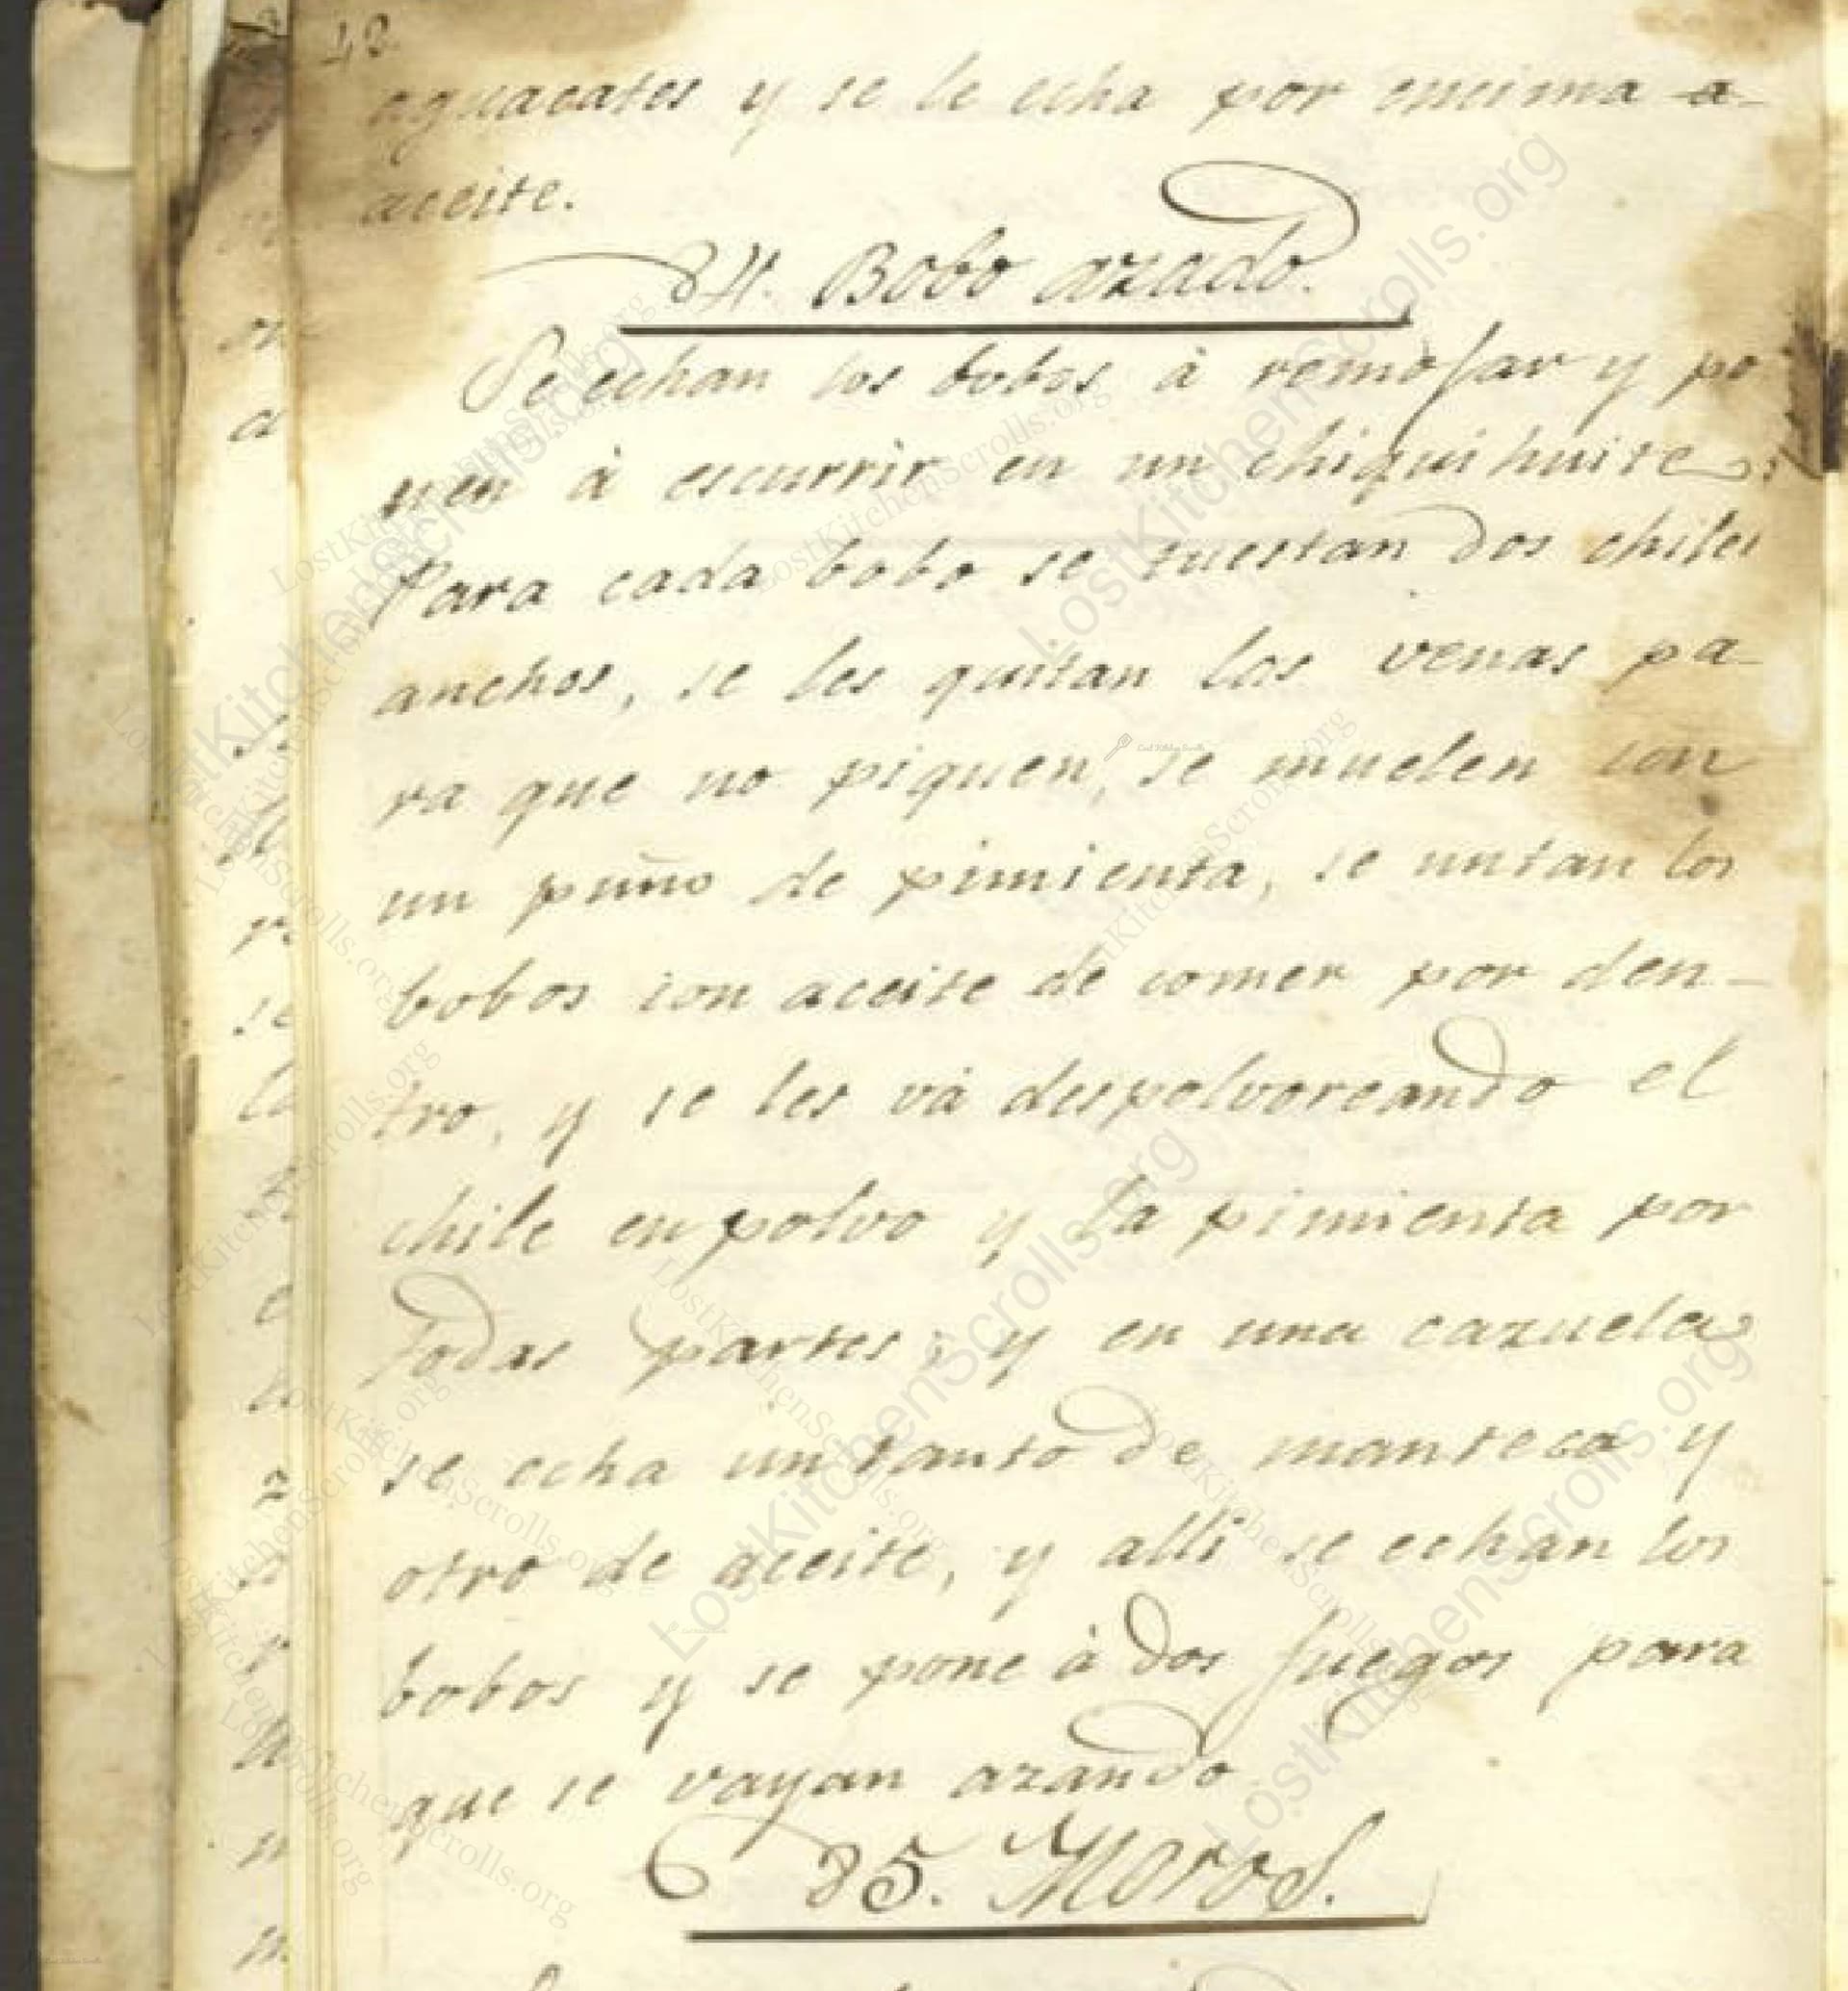 48.
aguacates y se le echa por encima a-
aceite.
84. Bobo azado.
Se echan los bobos à remojar y po
nen à escurrir en un chiquihuite;
Para cada bobo se tuestan dos chiles
anchos, se les quitan las venas pa-
ra que no piquen, se muelen con
un puño de pimienta, se untan los
bobos con aceite de comer por den-
tro, y se les và despolvoreando el
chile en polvo y la pimienta por
todas partes; y en una cazuela
se echa un tanto de manteca y
otro de aceite, y alli se echan los
bobos y se pone à dos fuegos para
que se vayan azando
85. Moros.